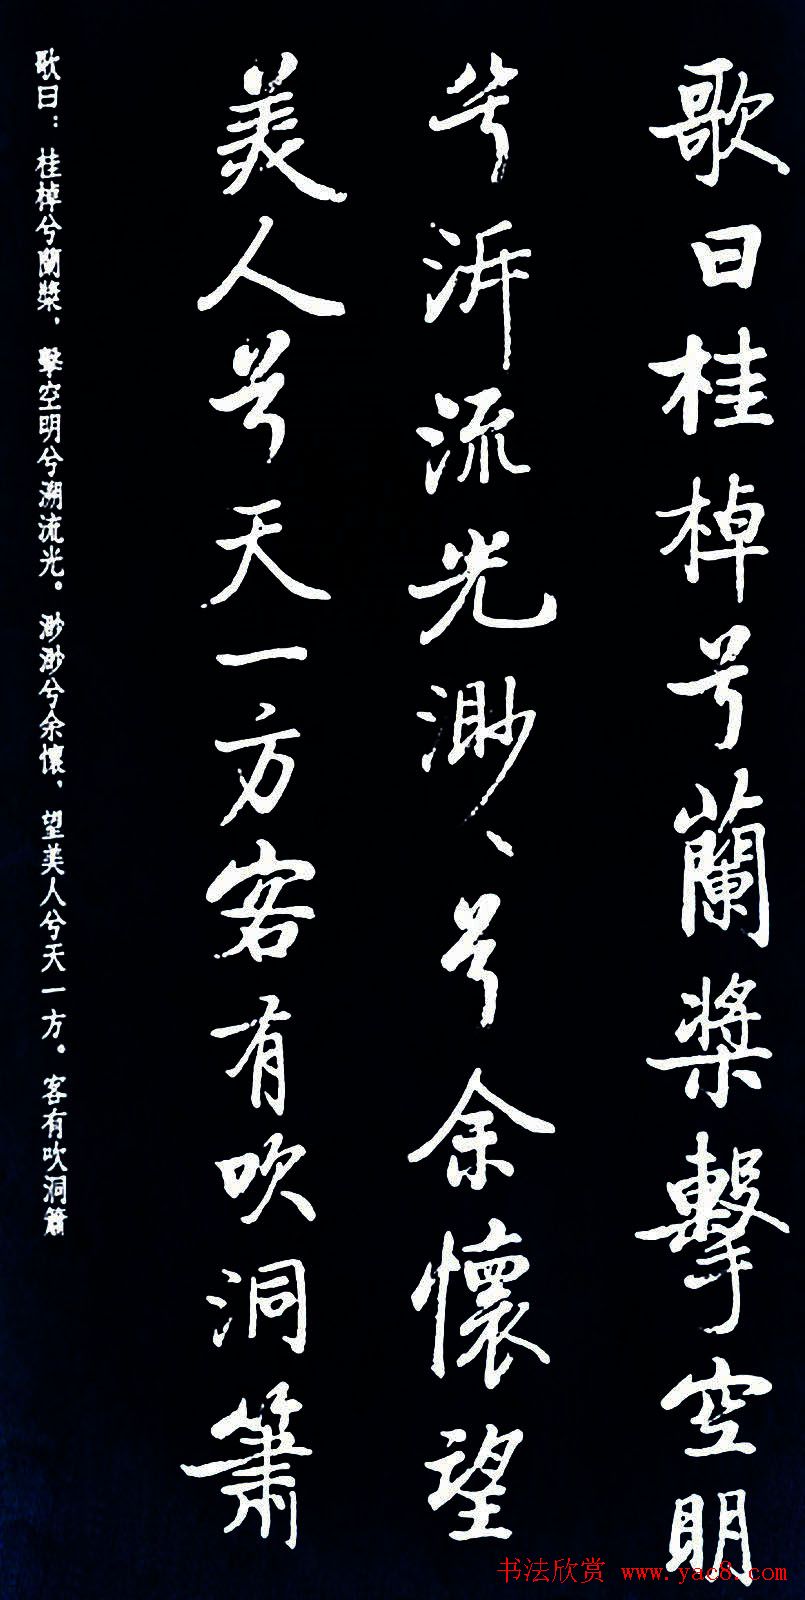 歌曰桂棹兮蘭槳擊空明
兮泝流光渺〻兮余懷望
美人兮天一方客有吹洞簫
歌曰：桂棹兮蘭槳，擊空明兮溯流光。渺渺兮余懷，望美人兮天一方。客有吹洞簫
书法欣赏 www.yac8.com